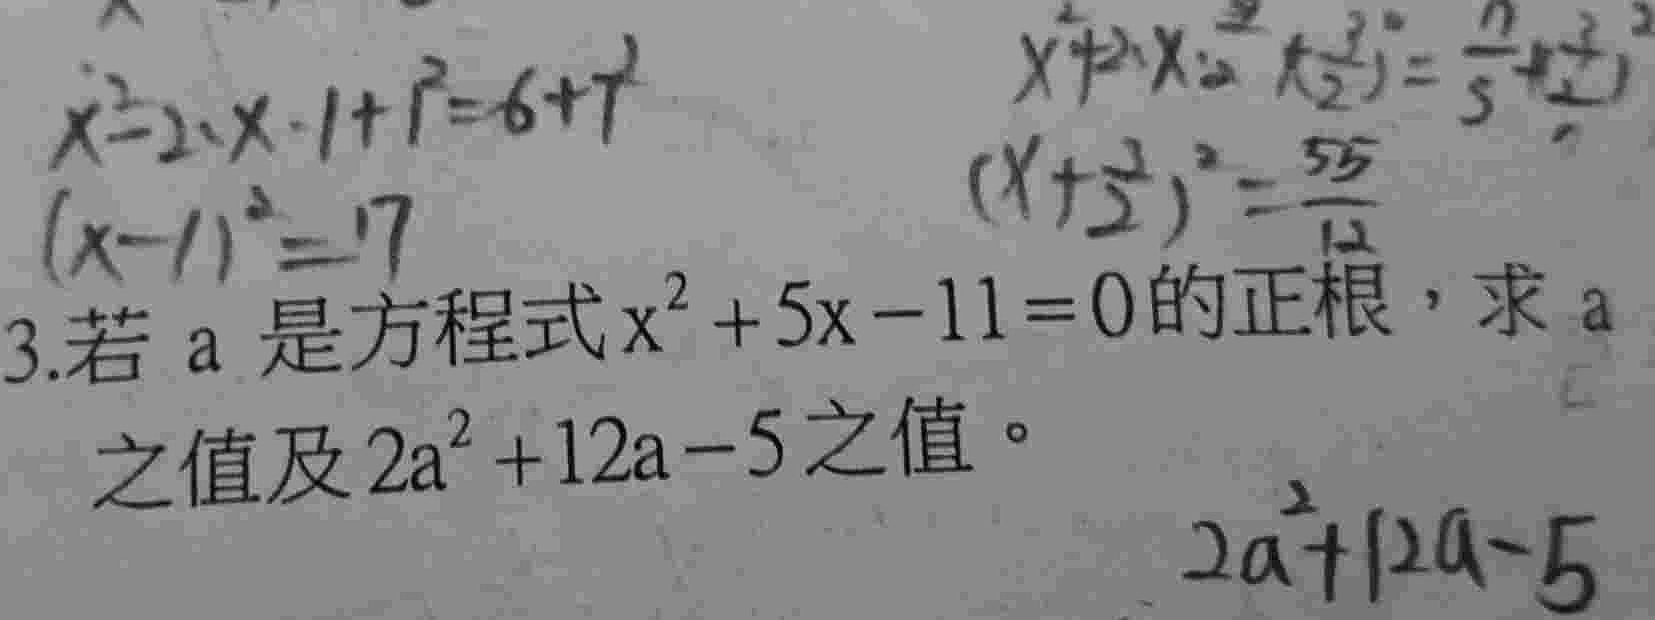 x²-2·x·1+1²=6+1²
(x-1)²=17
(x+3/2)²=55/12
3.若 a 是方程式x²+5x-11=0的正根,求 a
之值及2a²+12a-5之值。
2a²+12a-5